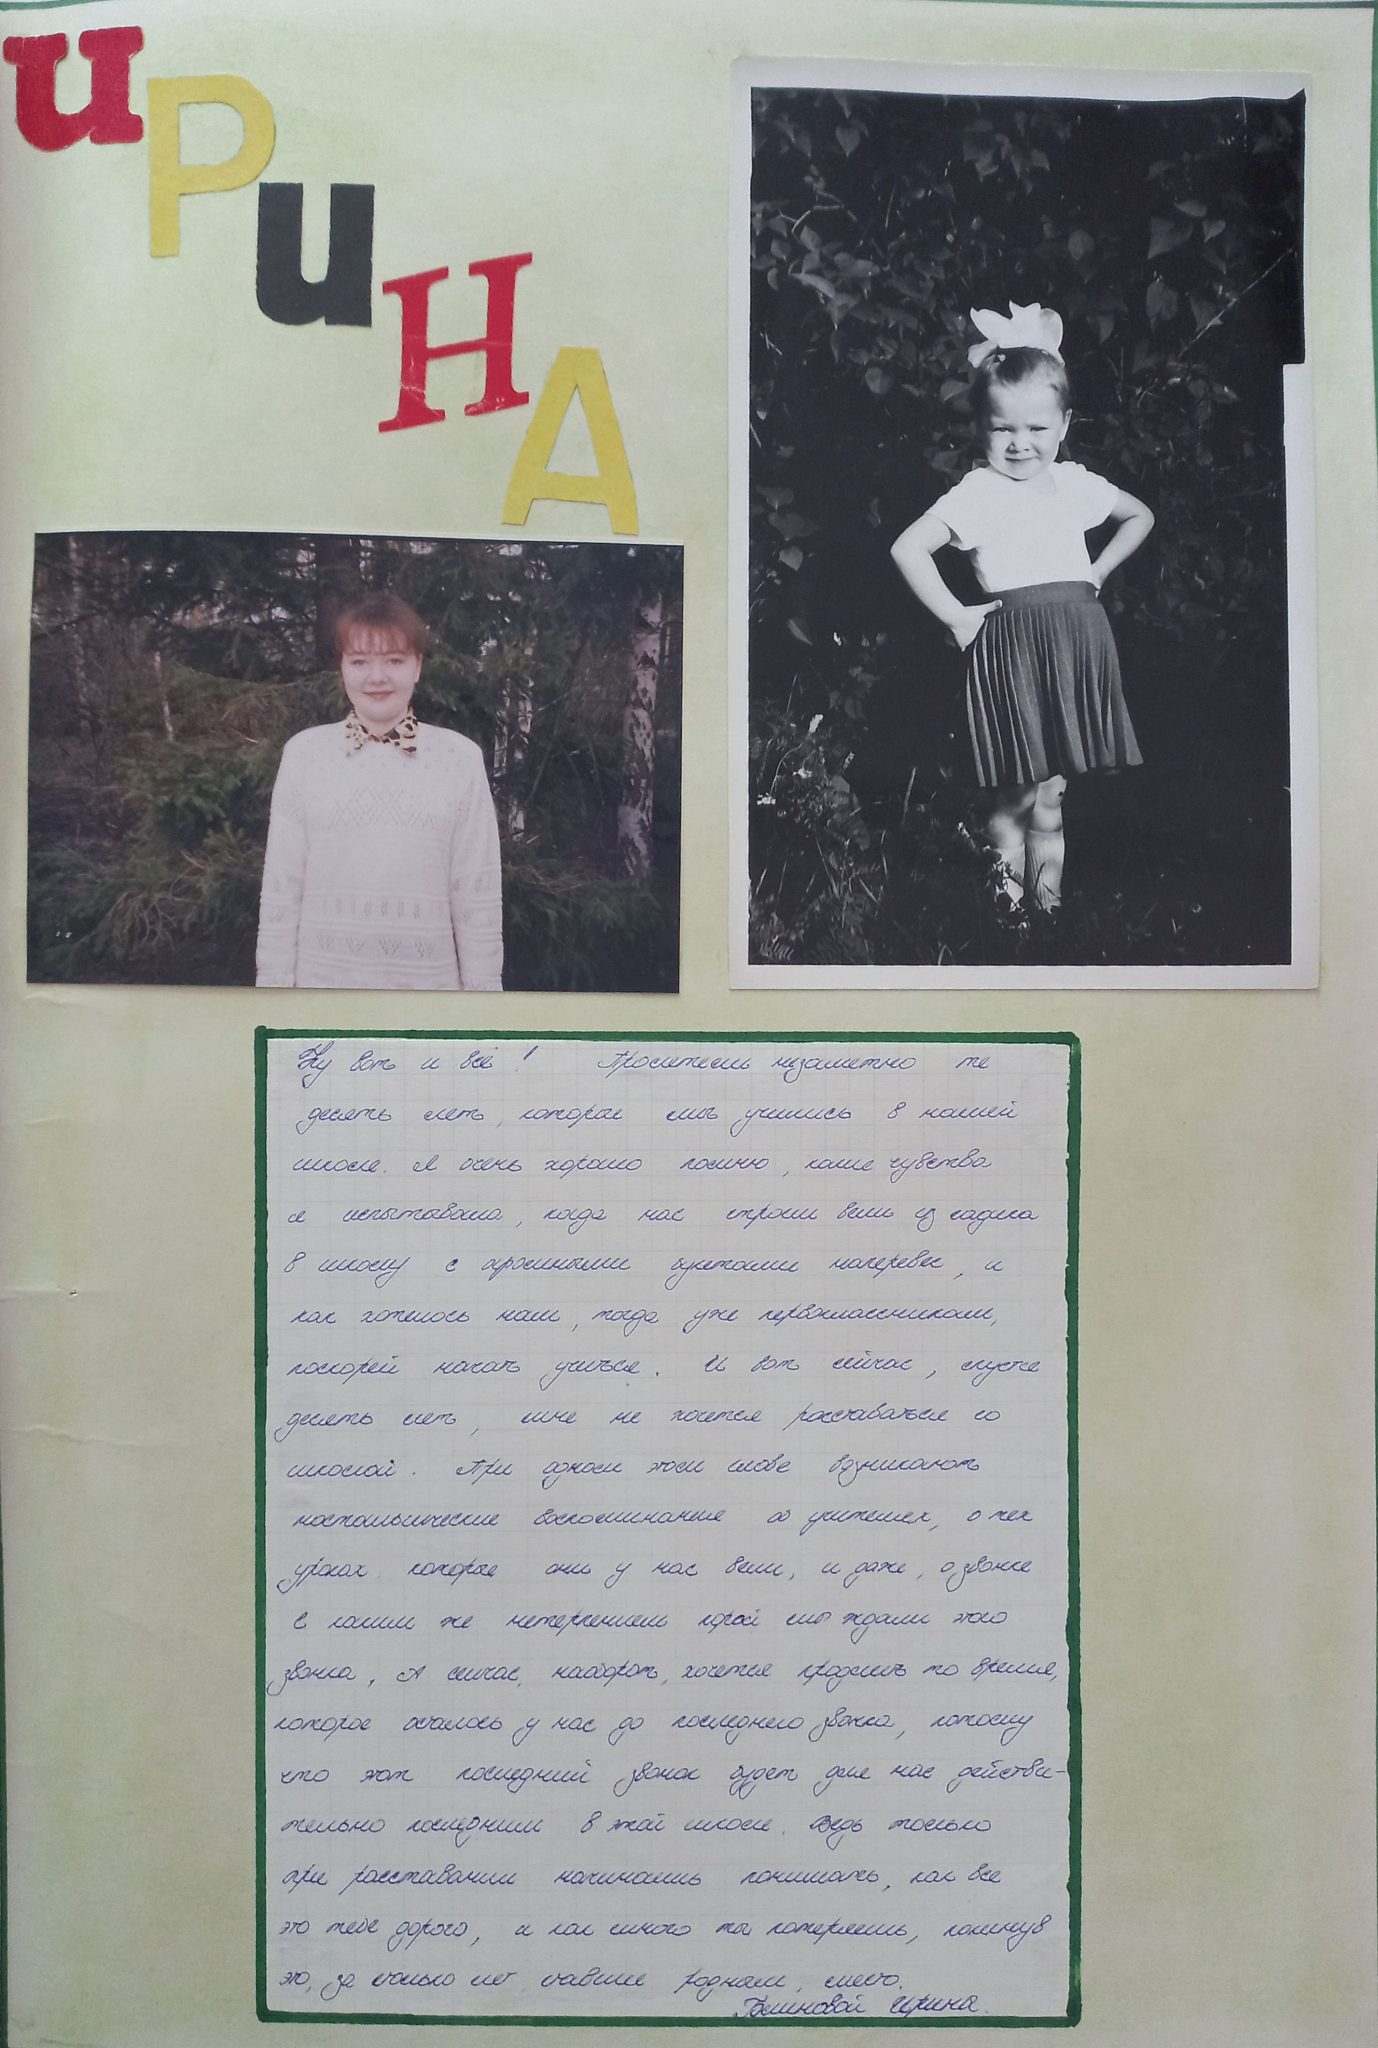 ИРИНА
Ну вот и всё! Пролетели незаметно те
десять лет, которые мы учились в нашей
школе. Я очень хорошо помню, какие чувства
я испытывала, когда нас строем вели из садика
в школу с огромными букетами наперевес, и
как хотелось нам, тогда уже первоклассникам,
поскорей начать учиться. И вот сейчас, спустя
десять лет, мне не хочется расставаться со
школой. При одном этом слове возникают
ностальгические воспоминания об учителях, о тех
уроках, которые они у нас вели, и даже, о звонке
с каким же нетерпением порой мы ждали этого
звонка. А сейчас, наоборот, хочется продлить то время,
которое осталось у нас до последнего звонка, потому
что этот последний звонок будет для нас действи-
тельно последним в этой школе. Ведь только
при расставании начинаешь понимать, как все
это тебе дорого, и как много ты потеряешь, покинув
это, за столько лет, ставшее родным, место.
Ирина.